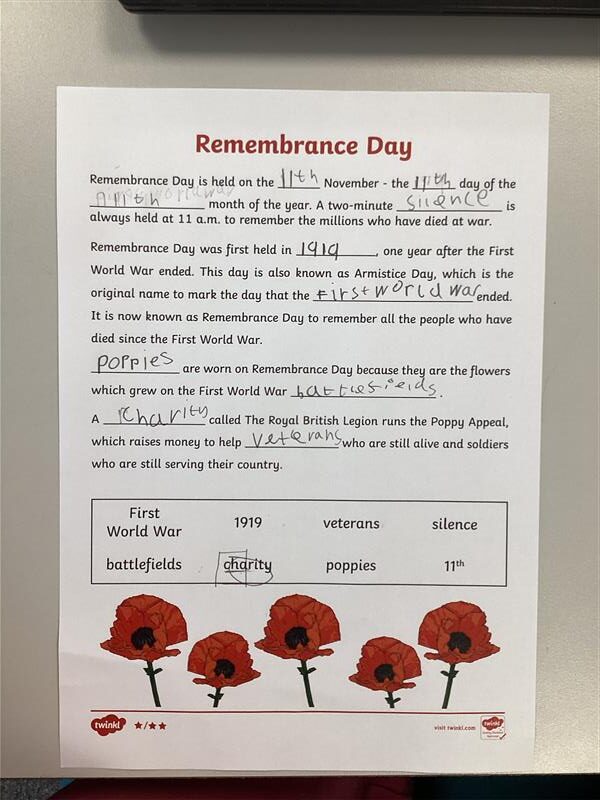 Remembrance Day
Remembrance Day is held on the 11th November - the 11th day of the
11th month of the year. A two-minute silence is
always held at 11 a.m. to remember the millions who have died at war.
Remembrance Day was first held in 1919, one year after the First
World War ended. This day is also known as Armistice Day, which is the
original name to mark the day that the first world war ended.
It is now known as Remembrance Day to remember all the people who have
died since the First World War.
poppies are worn on Remembrance Day because they are the flowers
which grew on the First World War battlefields.
A charity called The Royal British Legion runs the Poppy Appeal,
which raises money to help veterans who are still alive and soldiers
who are still serving their country.
First
World War 1919 veterans silence
battlefields charity poppies 11th
twinkl visit twinkl.com twinkl